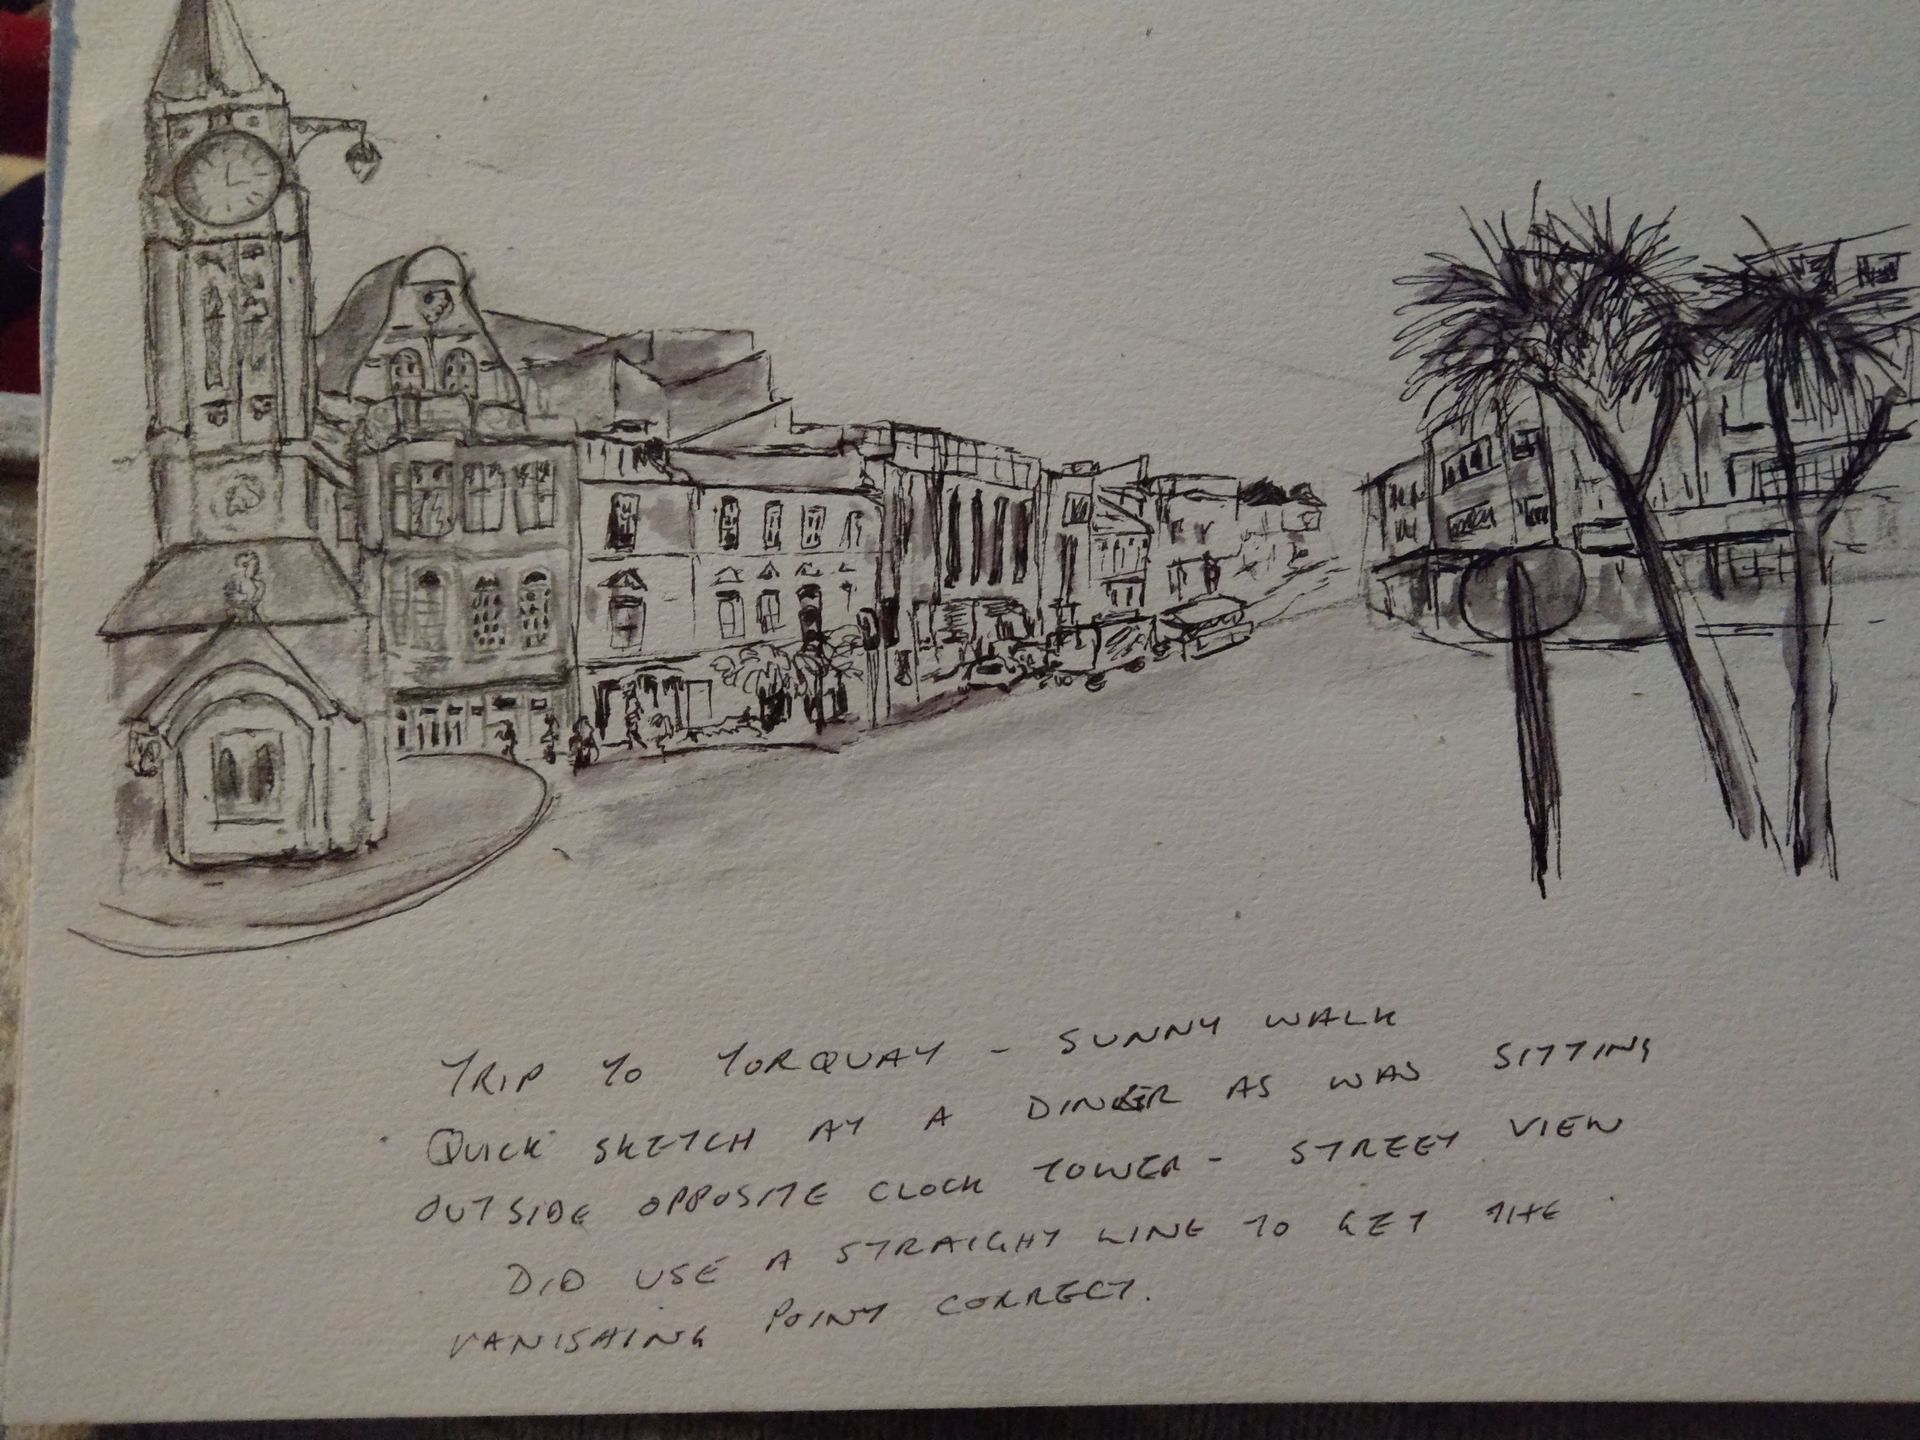 TRIP TO TORQUAY - SUNNY WALK
QUICK SKETCH AT A DINER AS WAS SITTING
OUTSIDE OPPOSITE CLOCK TOWER - STREET VIEW
DID USE A STRAIGHT LINE TO GET THE
VANISHING POINT CORRECT.